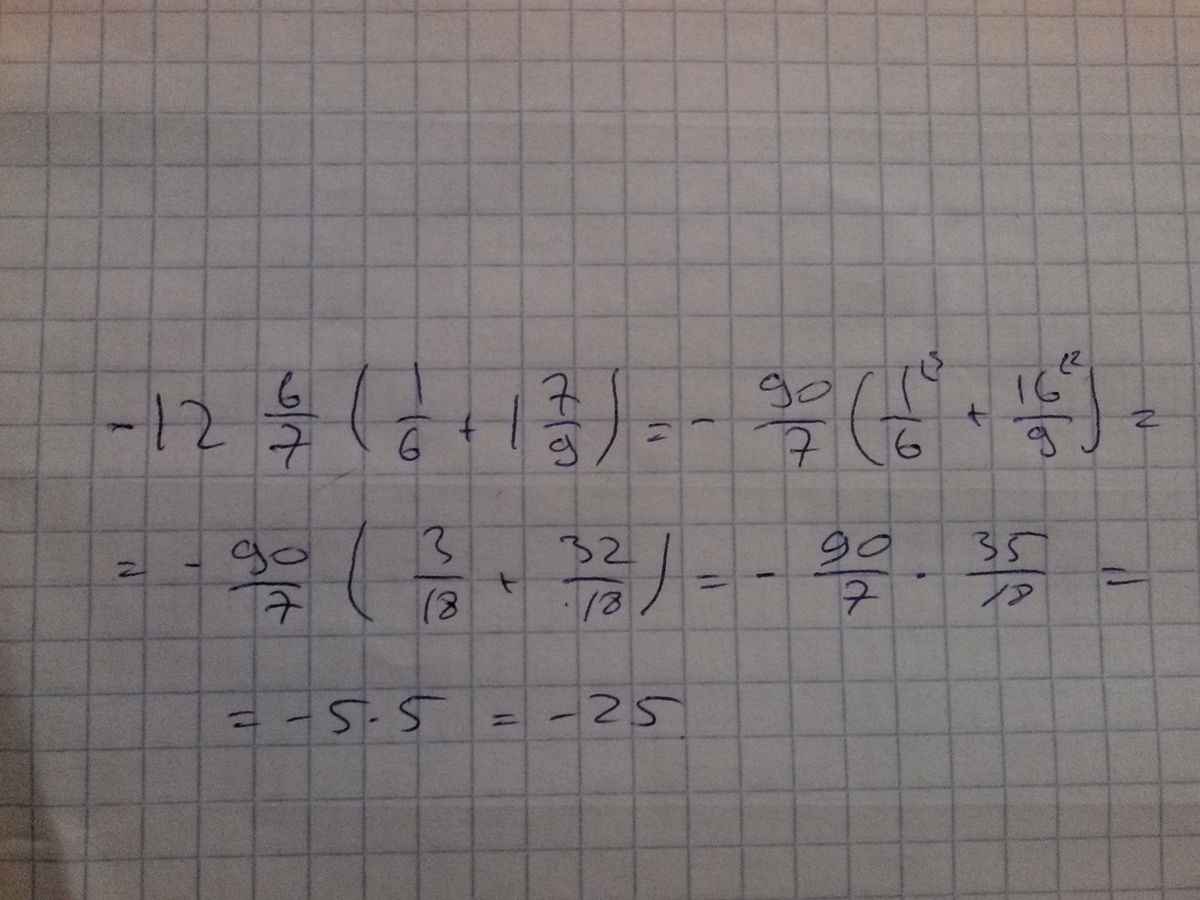 -12 6/7 (1/6 + 1 7/9) = - 90/7 (1/6 ⁽³ + 16/9 ⁽²) =
= - 90/7 (3/18 + 32/18) = - 90/7 · 35/18 =
= -5·5 = -25